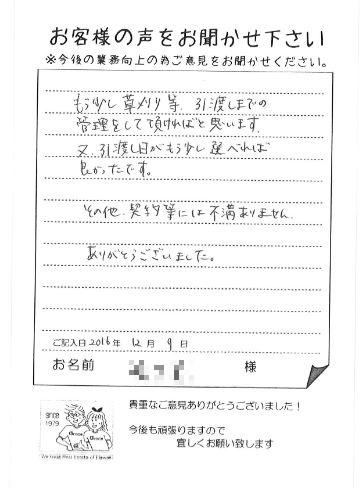 お客様の声をお聞かせ下さい
※今後の業務向上の為ご意見をお聞かせください。
もう少し草刈り等、引渡しまでの
管理をして頂ければと思います。
又、引渡し日がもう少し選べれば
良かったです。
その他、契約等には不満ありません。
ありがとうございました。
ご記入日2016年 12月 9日
お名前 様
貴重なご意見ありがとうございました！
今後も頑張りますので
宜しくお願い致します
since
1979